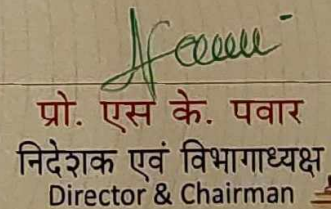 प्रो. एस के. पवार
निदेशक एवं विभागाध्यक्ष
Director & Chairman